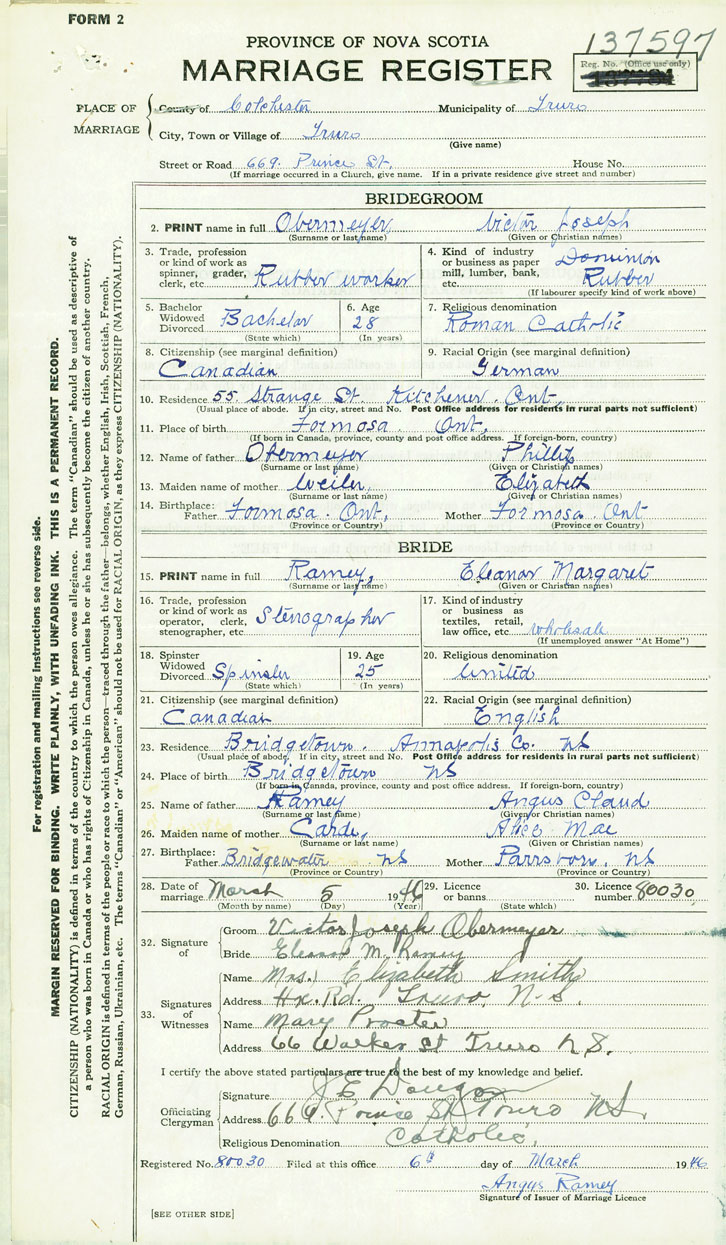 FORM 2
PROVINCE OF NOVA SCOTIA
137597
MARRIAGE REGISTER
Reg. No. (Office use only)
PLACE OF MARRIAGE
County of Colchester Municipality of Truro
City, Town or Village of Truro
(Give name)
Street or Road 669. Prince St. House No.
(If marriage occurred in a Church, give name. If in a private residence give street and number)
BRIDEGROOM
2. PRINT name in full Obermeyer, Victor Joseph
(Surname or last name) (Given or Christian names)
3. Trade, profession or kind of work as spinner, grader, clerk, etc. Rubber worker
4. Kind of industry or business as paper mill, lumber, bank, etc. Dominion Rubber
(If labourer specify kind of work above)
5. Bachelor Widowed Divorced Bachelor
(State which)
6. Age 28
(In years)
7. Religious denomination
Roman Catholic
8. Citizenship (see marginal definition)
Canadian
9. Racial Origin (see marginal definition)
German
10. Residence 55 Strange St. Kitchener. Ont,
(Usual place of abode. If in city, street and No. Post Office address for residents in rural parts not sufficient)
11. Place of birth Formosa. Ont,
(If born in Canada, province, county and post office address. If foreign-born, country)
12. Name of father Obermeyer Phillip
(Surname or last name) (Given or Christian names)
13. Maiden name of mother Weiler, Elizabeth
(Surname or last name) (Given or Christian names)
14. Birthplace: Father Formosa. Ont, Mother Formosa. Ont
(Province or Country) (Province or Country)
BRIDE
15. PRINT name in full Ramey, Eleanor Margaret
(Surname or last name) (Given or Christian names)
16. Trade, profession or kind of work as operator, clerk, stenographer, etc. Stenographer
17. Kind of industry or business as textiles, retail, law office, etc. wholesale
(If unemployed answer "At Home")
18. Spinster Widowed Divorced Spinster
(State which)
19. Age 25
(In years)
20. Religious denomination
United
21. Citizenship (see marginal definition)
Canadian
22. Racial Origin (see marginal definition)
English
23. Residence Bridgetown. Annapolis Co. NS
(Usual place of abode. If in city, street and No. Post Office address for residents in rural parts not sufficient)
24. Place of birth Bridgetown NS
(If born in Canada, province, county and post office address. If foreign-born, country)
25. Name of father Ramey Angus Claud
(Surname or last name) (Given or Christian names)
26. Maiden name of mother Alice Mae
(Surname or last name) (Given or Christian names)
27. Birthplace: Father Bridgewater NS Mother Parrsboro, NS
(Province or Country) (Province or Country)
28. Date of marriage March 5 1946
(Month by name) (Day) (Year)
29. Licence or banns
(State which)
30. Licence number 80030
32. Signature of
Groom Victor Joseph Obermeyer
Bride Eleanor M. Ramey
33. Signatures of Witnesses
Name Mrs. Elizabeth Smith
Address Hx. Rd. Truro, N.S.
Name Mary Procter
Address 66 Walker St Truro N.S.
I certify the above stated particulars are true to the best of my knowledge and belief.
Officiating Clergyman
Signature J E
Address 669. Prince St Truro NS.
Religious Denomination Catholic.
Registered No. 80030 Filed at this office 6th day of March 1946
Angus Ramey
Signature of Issuer of Marriage Licence
[SEE OTHER SIDE]
For registration and mailing instructions see reverse side.
MARGIN RESERVED FOR BINDING. WRITE PLAINLY, WITH UNFADING INK. THIS IS A PERMANENT RECORD.
CITIZENSHIP (NATIONALITY) is defined in terms of the country to which the person owes allegiance. The term "Canadian" should be used as descriptive of
a person who was born in Canada or who has rights of Citizenship in Canada, unless he or she has subsequently become the citizen of another country.
RACIAL ORIGIN is defined in terms of the people or race to which the person—traced through the father—belongs, whether English, Irish, Scottish, French,
German, Russian, Ukrainian, etc. The terms "Canadian" or "American" should not be used for RACIAL ORIGIN, as they express CITIZENSHIP (NATIONALITY).